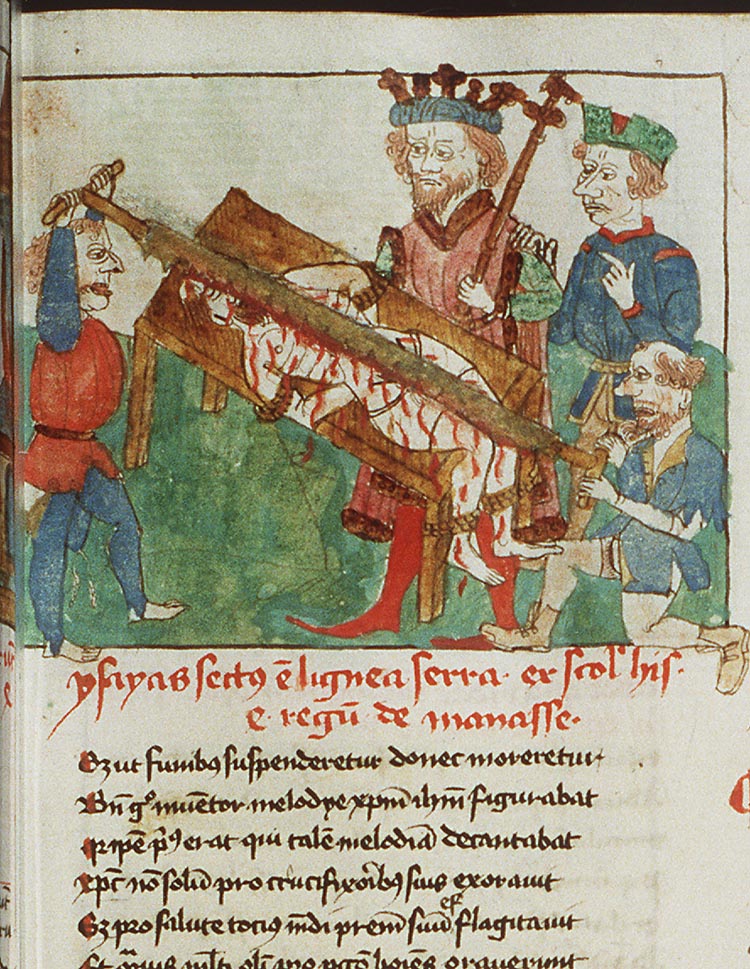 ysayas sect9 ē lignea serra· ex scol' his·
e· regū· de manasse·
Sz ut funibus suspenderetur donec moreretur
Bn̄ g° inventor melodye xpm̄ ihm̄ figurabat
Qui ipe p'9 erat qui talē melodiā decantabat
xpc̄ nō solū pro crucifixorib9 suis exoravit
Sz pro salute totius mūdi prem̄ suū flagitavit
Et